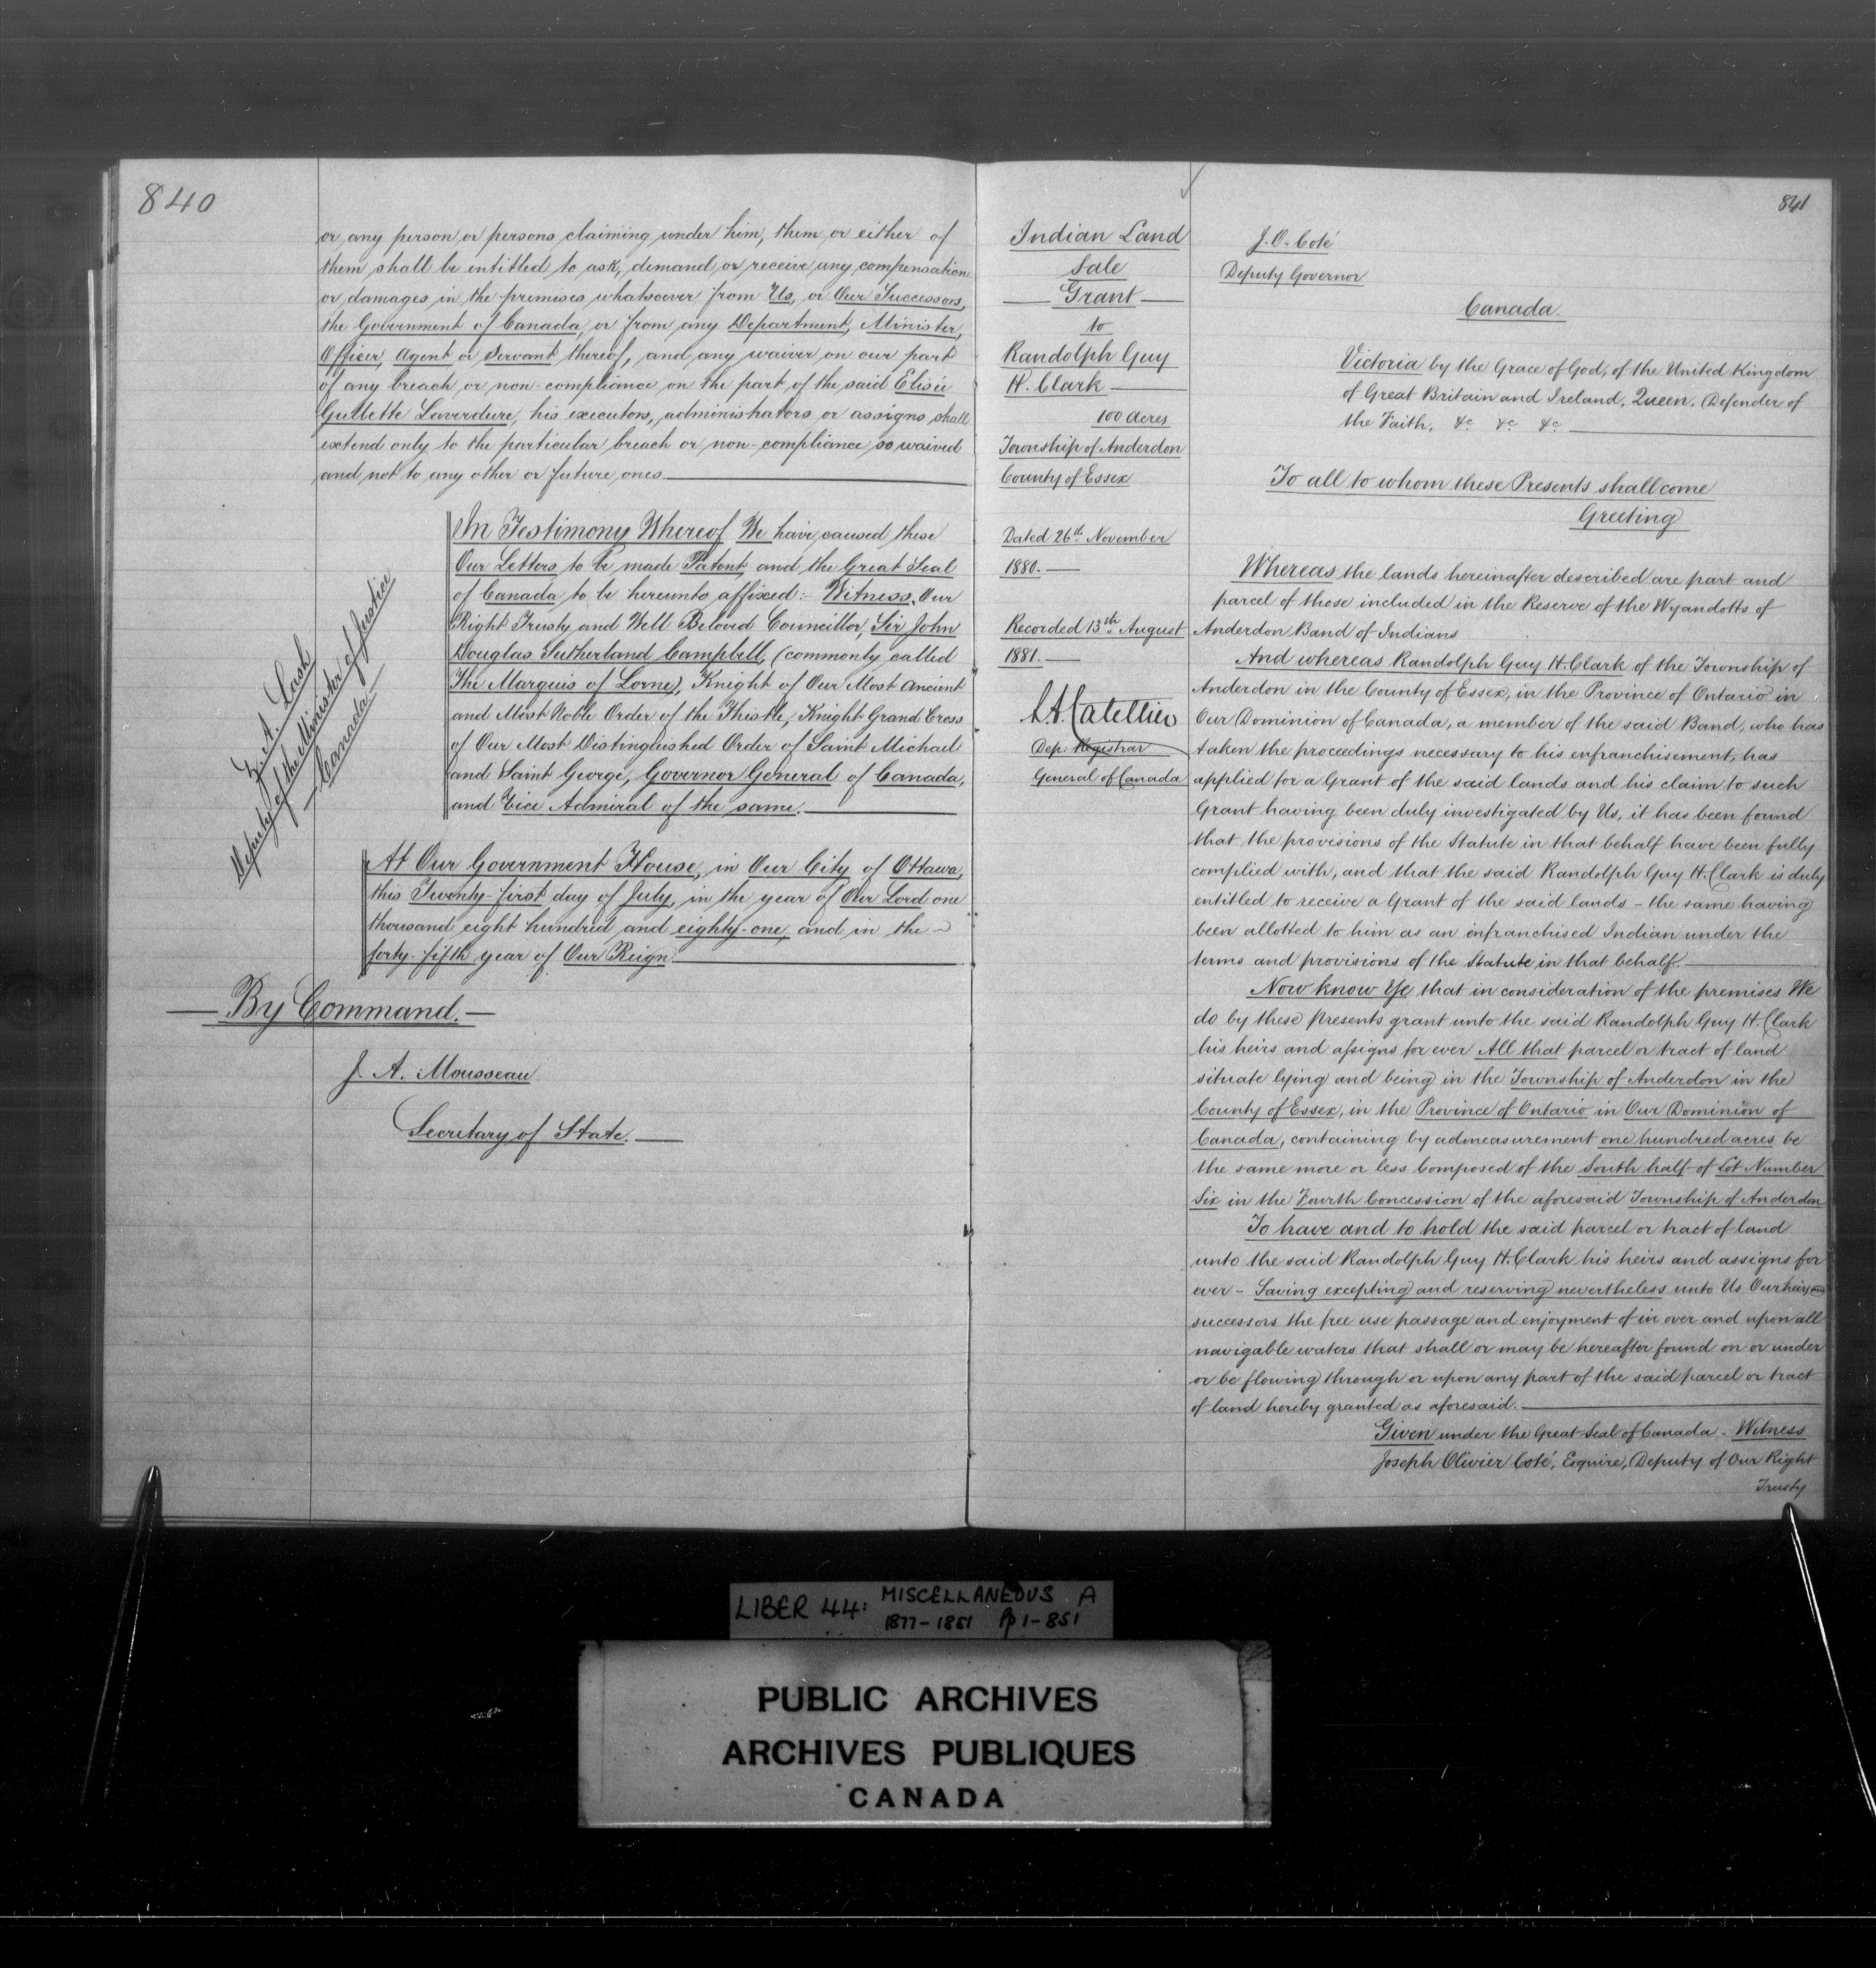 840
or any person or persons claiming under him, them or either of
them shall be entitled to ask, demand, or receive any compensation
or damages in the premises whatsoever from Us, or Our Successors,
the Government of Canada, or from any Department, Minister,
Officer, Agent or Servant thereof, and any waiver on our part
of any breach or non-compliance on the part of the said Elisée
Guillette Laverdure, his executors, administrators or assigns, shall
extend only to the particular breach or non-compliance so waived
and not to any other or future ones.
In Testimony Whereof We have caused these
Our Letters to be made Patent, and the Great Seal
of Canada to be hereunto affixed:- Witness, Our
Right Trusty and Well Beloved Councillor, Sir John
Douglas Sutherland Campbell, (commonly called
The Marquis of Lorne), Knight of Our Most Ancient
and Most Noble Order of the Thistle, Knight Grand Cross
of Our Most Distinguished Order of Saint Michael
and Saint George, Governor General of Canada,
and Vice Admiral of the same.
Z. A. Lash
Deputy of the Minister of Justice
Canada
At Our Government House, in Our City of Ottawa,
this Twenty-first day of July, in the year of Our Lord one
thousand eight hundred and eighty-one, and in the
forty-fifth year of Our Reign.
By Command.
J. A. Mousseau
Secretary of State.
841
Indian Land
Sale
Grant
to
Randolph Guy
H. Clark
100 acres
Township of Anderdon
County of Essex
Dated 26th November
1880.
Recorded 13th August
1881.
L. A. Catellier
Dep: Registrar
General of Canada
J. O. Coté
Deputy Governor
Canada.
Victoria by the Grace of God, of the United Kingdom
of Great Britain and Ireland, Queen, Defender of
the Faith, &c &c &c
To all to whom these Presents shall come
Greeting
Whereas the lands hereinafter described are part and
parcel of those included in the Reserve of the Wyandotts of
Anderdon Band of Indians
And whereas Randolph Guy H. Clark of the Township of
Anderdon in the County of Essex, in the Province of Ontario in
Our Dominion of Canada, a member of the said Band, who has
taken the proceedings necessary to his enfranchisement, has
applied for a Grant of the said lands and his claim to such
Grant having been duly investigated by Us, it has been found
that the provisions of the Statute in that behalf have been fully
complied with, and that the said Randolph Guy H. Clark is duly
entitled to receive a Grant of the said lands - the same having
been allotted to him as an enfranchised Indian under the
terms and provisions of the Statute in that behalf.
Now know Ye that in consideration of the premises We
do by these Presents grant unto the said Randolph Guy H. Clark
his heirs and assigns for ever All that parcel or tract of land
situate lying and being in the Township of Anderdon in the
County of Essex, in the Province of Ontario in Our Dominion of
Canada, containing by admeasurement one hundred acres be
the same more or less Composed of the South half of Lot Number
Six in the Fourth Concession of the aforesaid Township of Anderdon
To have and to hold the said parcel or tract of land
unto the said Randolph Guy H. Clark his heirs and assigns for
ever - Saving excepting and reserving nevertheless unto Us Our heirs and
successors the free use passage and enjoyment of in over and upon all
navigable waters that shall or may be hereafter found on or under
or be flowing through or upon any part of the said parcel or tract
of land hereby granted as aforesaid.
Given under the Great Seal of Canada - Witness
Joseph Olivier Coté, Esquire, Deputy of Our Right
Trusty
LIBER 44: MISCELLANEOUS A
1877-1881 Pp 1-851
PUBLIC ARCHIVES
ARCHIVES PUBLIQUES
CANADA